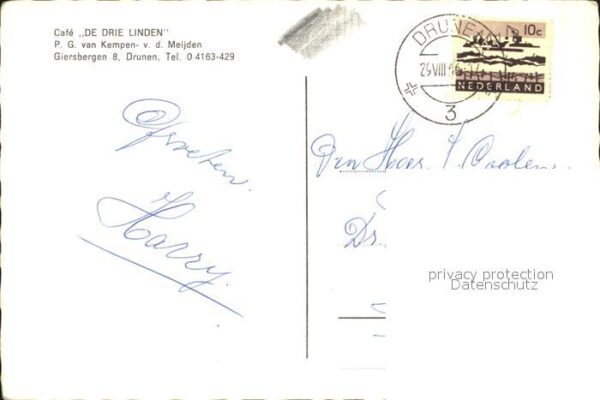 Café „DE DRIE LINDEN”
P. G. van Kempen- v. d. Meijden
Giersbergen 8, Drunen, Tel. 0 4163-429
DRUNEN
3
10c
NEDERLAND
Groeten
Harry.
Den Heer
Dr.
privacy protection
Datenschutz